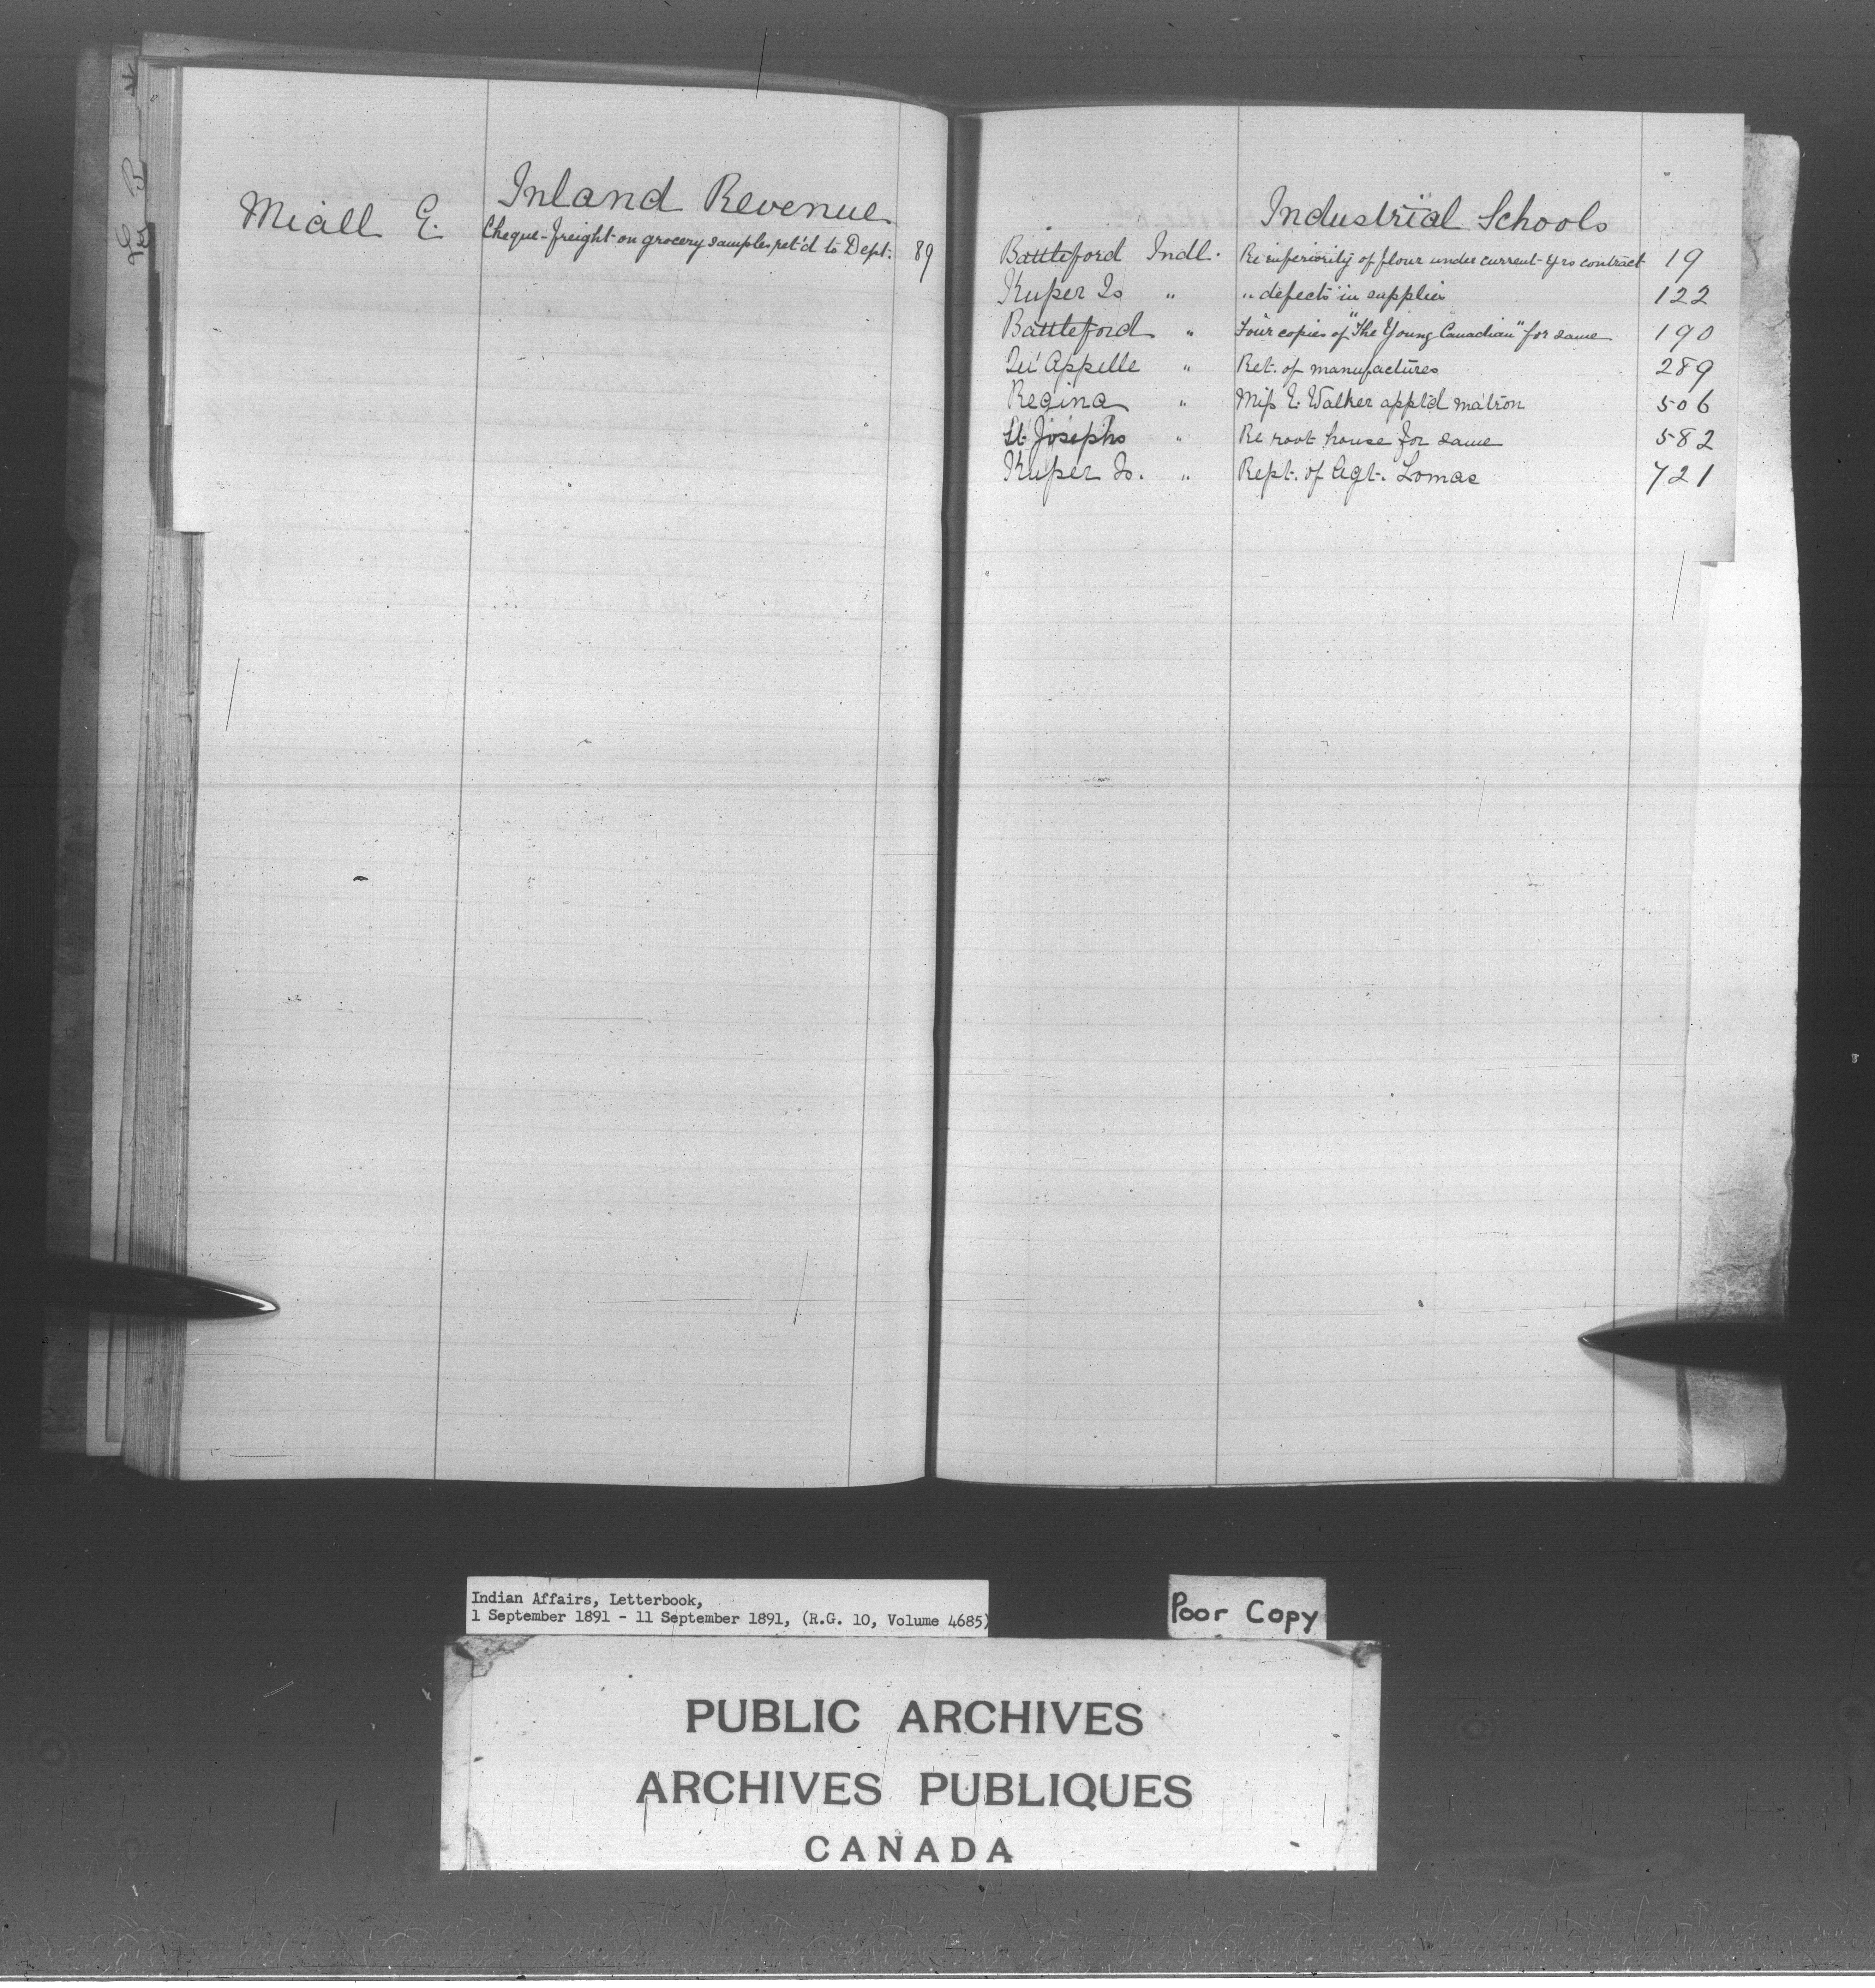 Inland Revenue
Miall E. Cheque - freight on grocery samples ret'd to Dept. 89
Industrial Schools
Battleford Indl. Re inferiority of flour under current yrs contract 19
Kuper Is " " defects in supplies 122
Battleford " Four copies of "The Young Canadian" for same 190
Qu'Appelle " Ret. of manufactures 289
Regina " Miss E. Walker appt'd matron 506
St. Josephs " Re root house for same 582
Kuper Is. " Rept. of Agt. Lomas 721
Indian Affairs, Letterbook,
1 September 1891 - 11 September 1891, (R.G. 10, Volume 4685)
Poor Copy
PUBLIC ARCHIVES
ARCHIVES PUBLIQUES
CANADA